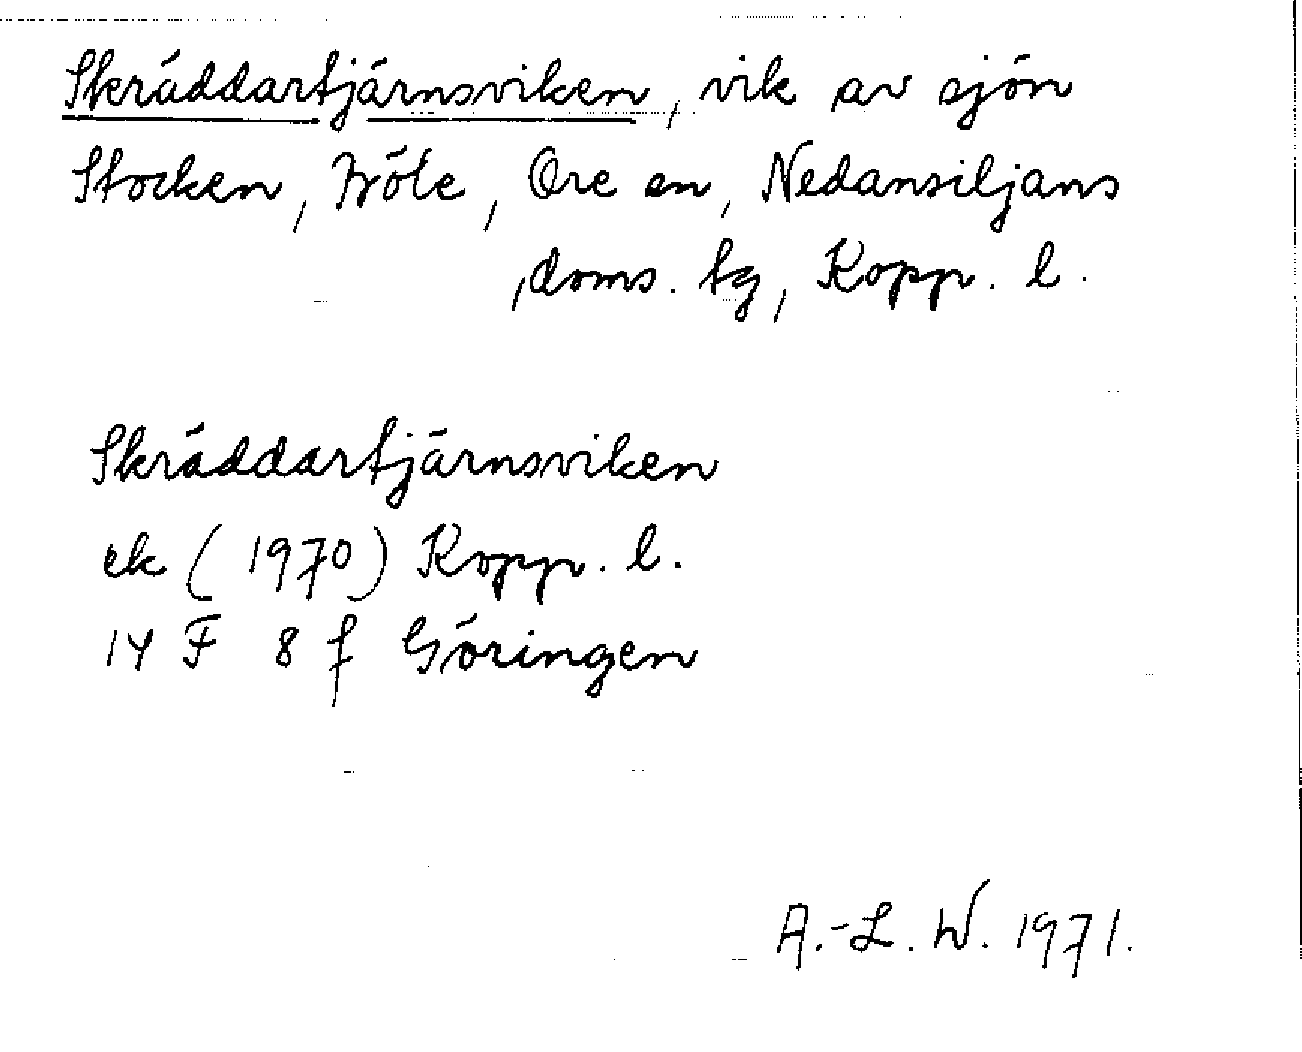 Skräddartjärnsviken, vik av sjön
Stocken, Ore en, Nedansiljans
doms. tg, Kopp. l.
Skräddartjärnsviken
ek (1970) Kopp. l.
14 F 8 f Göringen
A.-L. W. 1971.